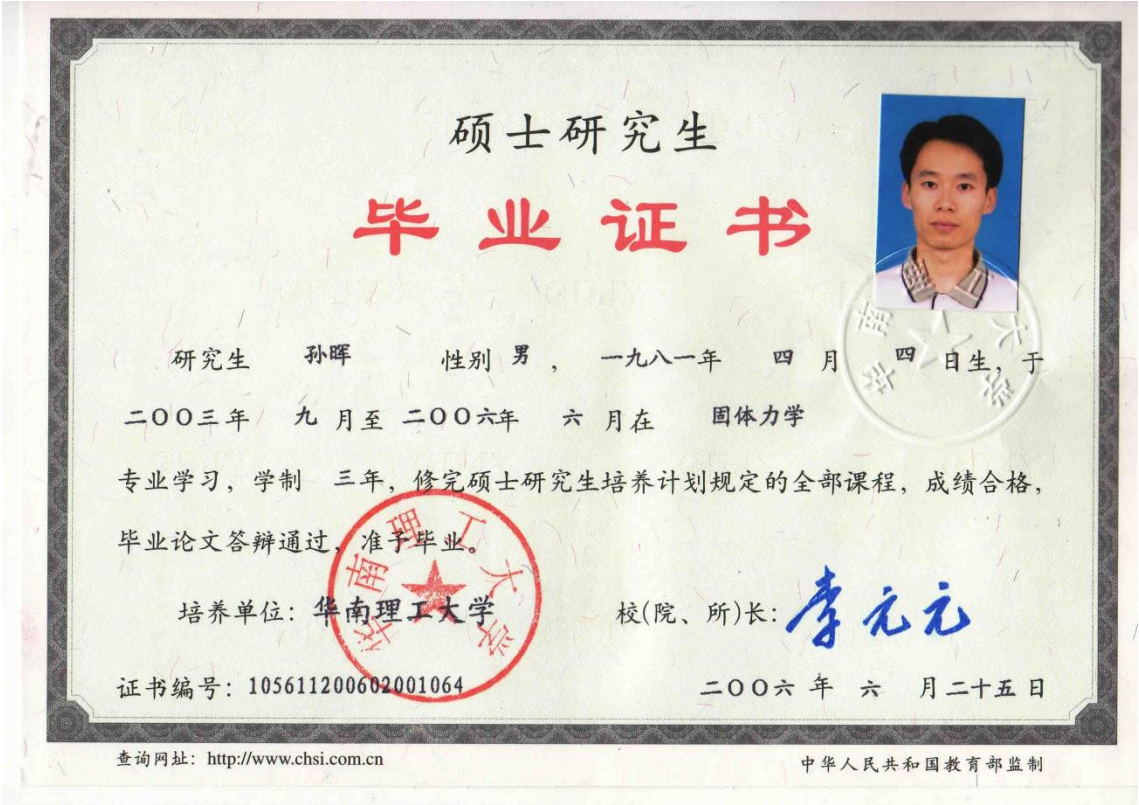 硕士研究生
毕业证书
研究生 孙晖 性别 男 ， 一九八一年 四 月 四 日生，于
二〇〇三年 九 月至 二〇〇六年 六 月在 固体力学
专业学习，学制 三年，修完硕士研究生培养计划规定的全部课程，成绩合格，
毕业论文答辩通过，准予毕业。
培养单位：华南理工大学 校(院、所)长：李元元
证书编号：105611200602001064 二〇〇六 年 六 月二十五日
查询网址：http://www.chsi.com.cn 中华人民共和国教育部监制
华南理工大学
华南理工大学